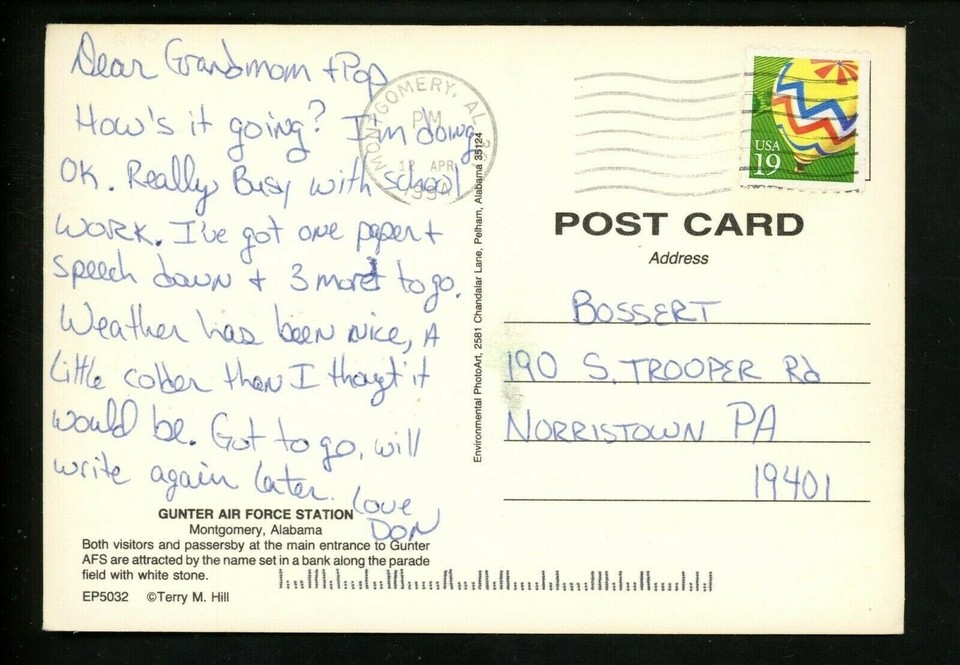 Dear Grandmom + Pop
How's it going? I'm doing
OK. Really Busy with school
work. I've got one paper +
speech down + 3 more to go.
Weather has been nice, A
little colder than I thougt it
would be. Got to go, will
write again later.
Love
DON
GUNTER AIR FORCE STATION
Montgomery, Alabama
Both visitors and passersby at the main entrance to Gunter
AFS are attracted by the name set in a bank along the parade
field with white stone.
EP5032 ©Terry M. Hill
Environmental PhotoArt, 2581 Chandalar Lane, Pelham, Alabama 35124
MONTGOMERY, AL
PM
APR
USA
19
POST CARD
Address
BOSSERT
190 S. TROOPER Rd
NORRISTOWN PA
19401